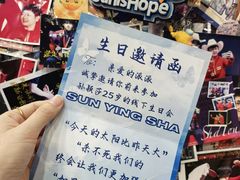 sHope
生日邀请函
亲爱的派派
诚挚邀请你前来参加
孙颖莎25岁的线下生日会
SUN YING SHA
“今天的太阳比昨天大”
“杀不死我们的
终会让我们更加强